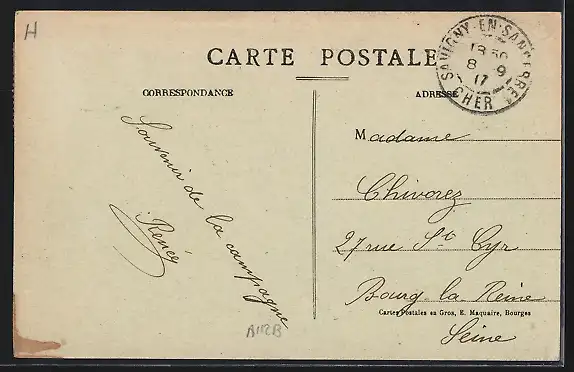 H
CARTE POSTALE
SAVIGNY-EN-SANCERRE
18 50
8 -9
17
CHER
CORRESPONDANCE
ADRESSE
Souvenir de la campagne
Renée
Madame
Chivorez
27 rue St Cyr
Bourg-la-Reine
Cartes Postales en Gros, E. Maquaire, Bourges
Seine
A112B